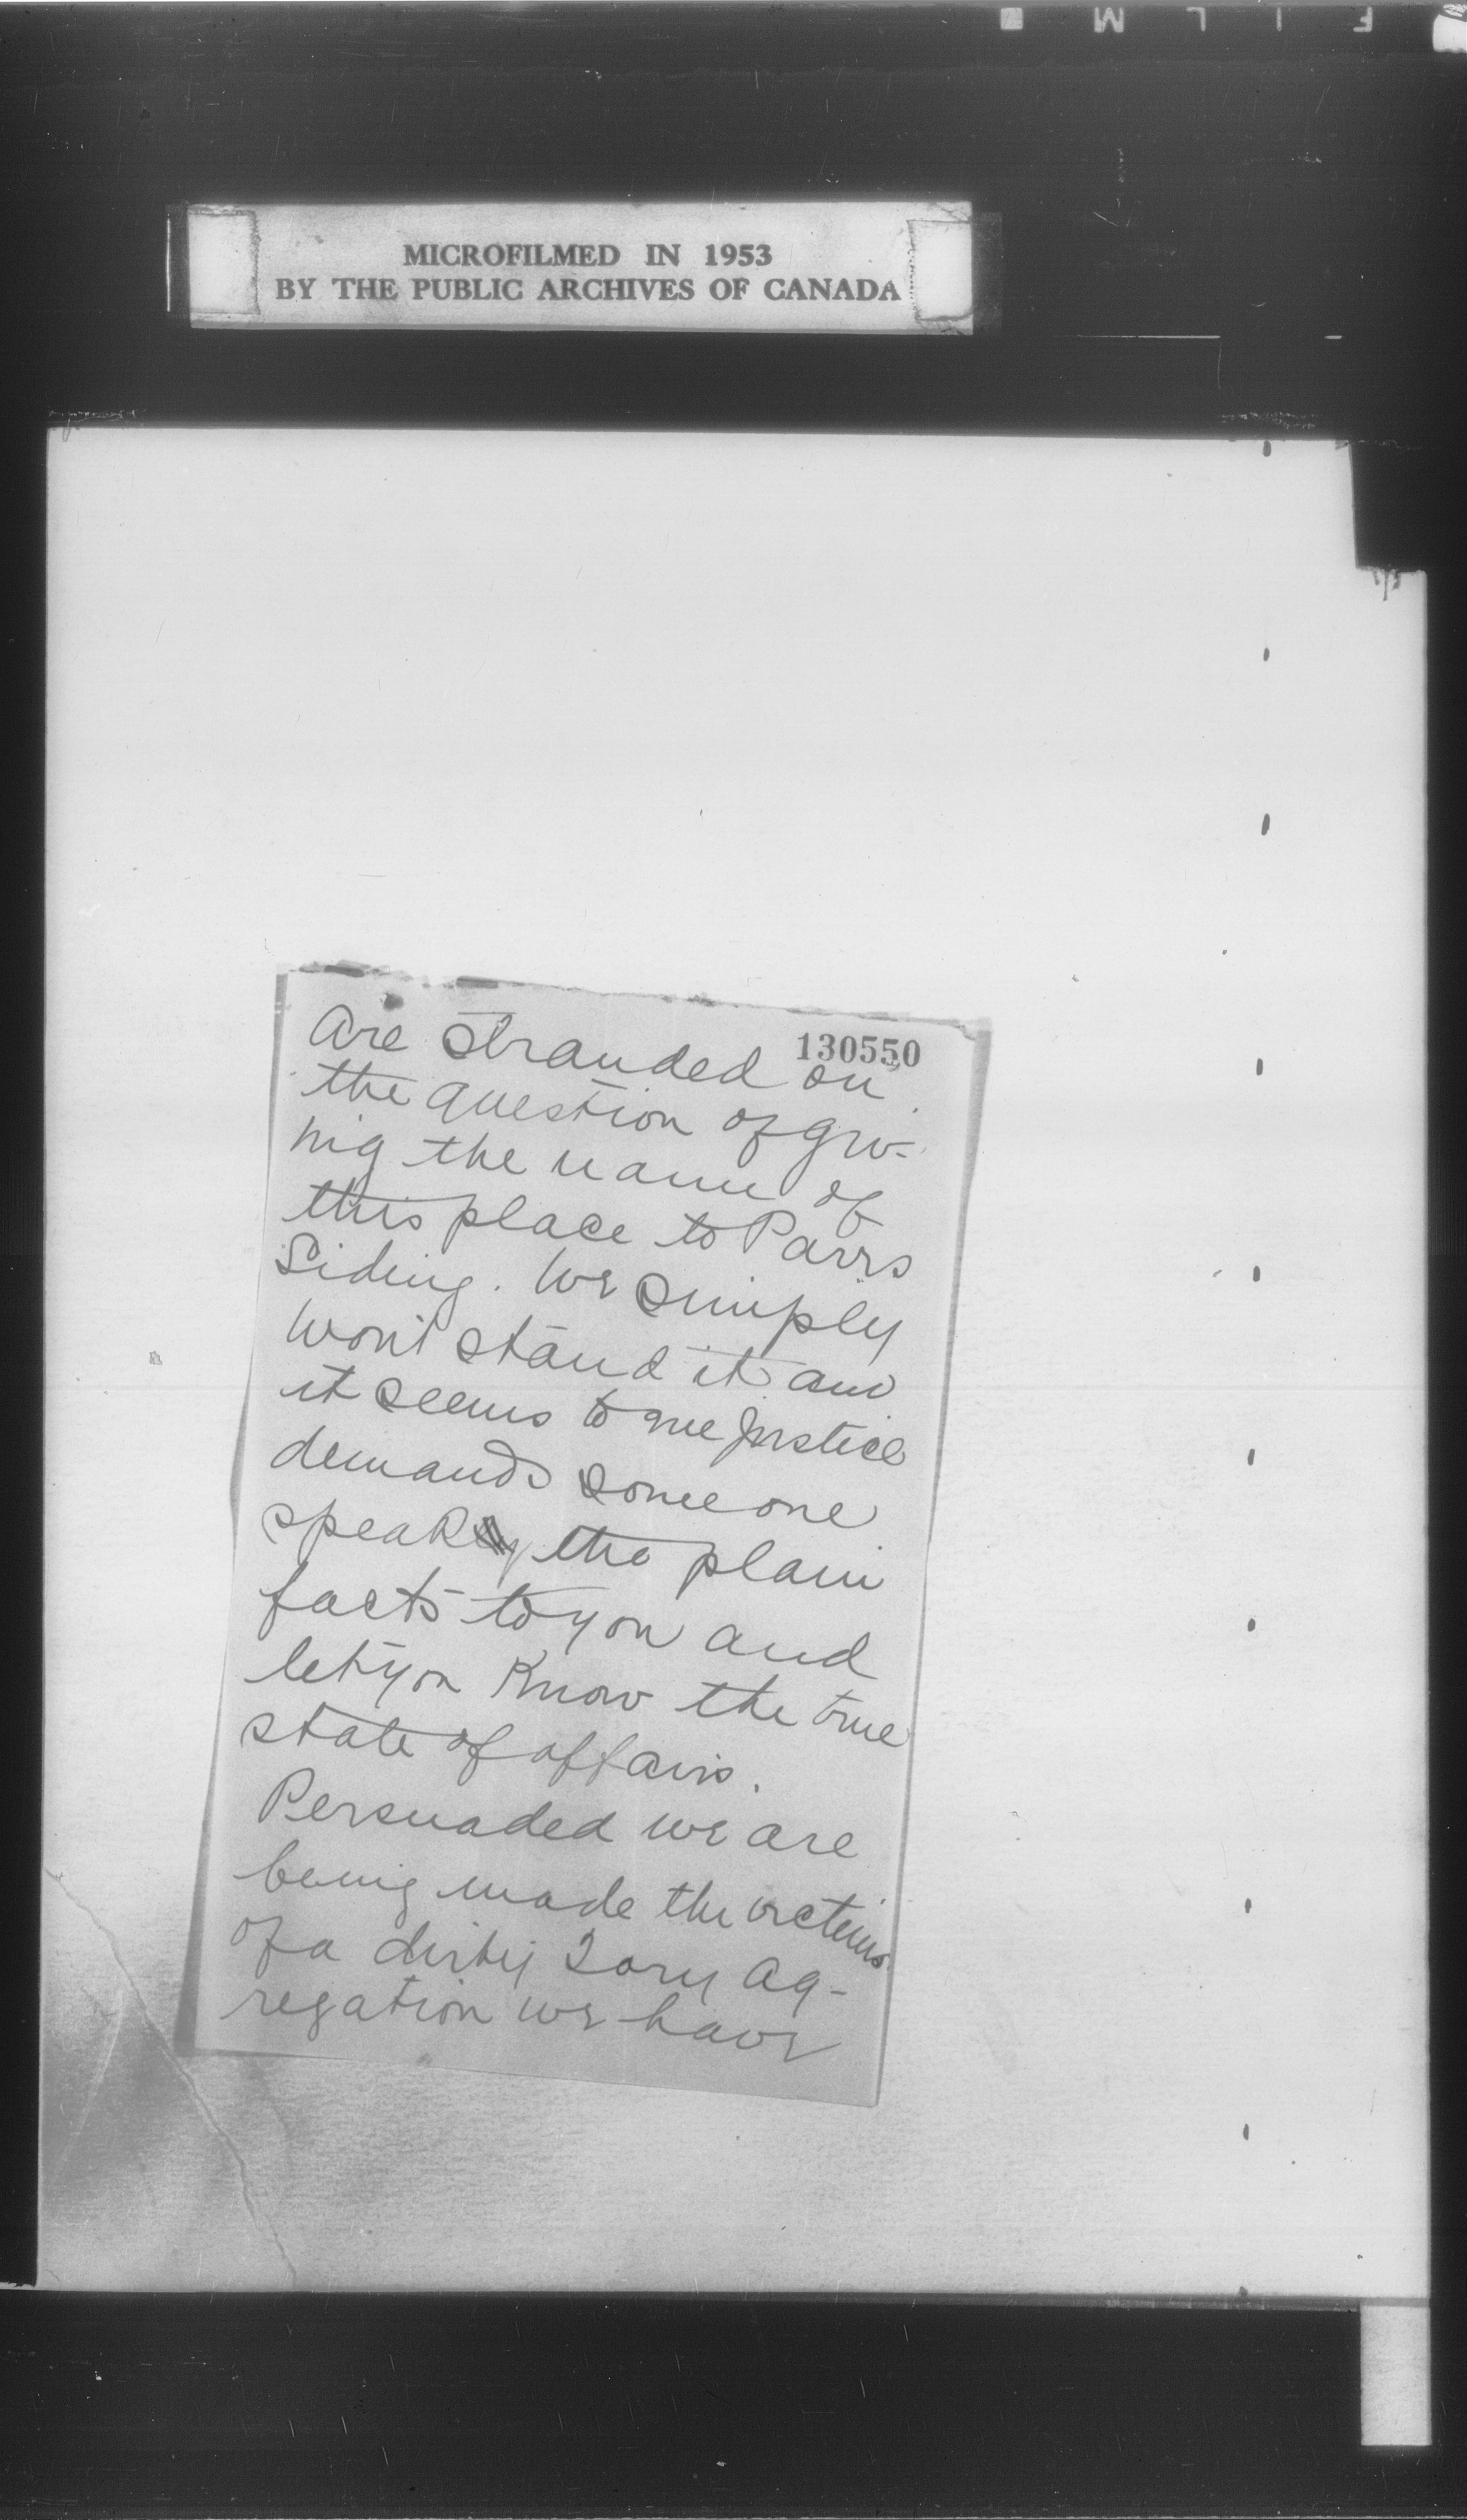 F I L M
MICROFILMED IN 1953
BY THE PUBLIC ARCHIVES OF CANADA
130550
are stranded on
the question of giv-
ing the name of
this place to Parrs
Siding. We simply
wont stand it and
it seems to me justice
demands some one
speak the plain
facts to you and
let you know the true
state of affairs.
Persuaded we are
being made the victims
of a dirty Tory ag-
regation we have